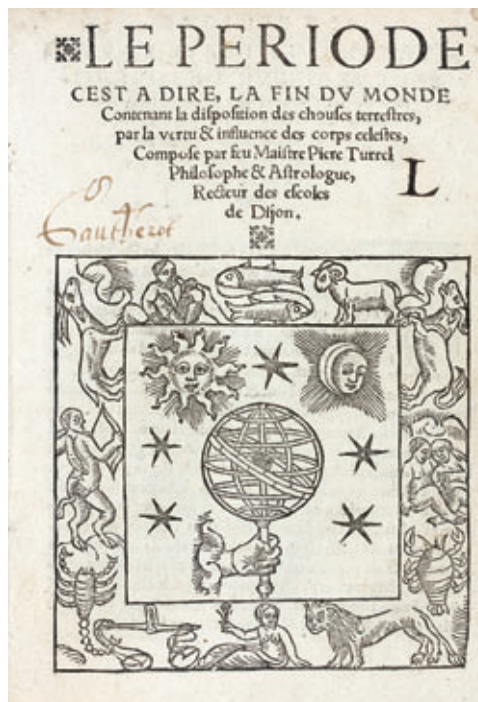 LE PERIODE
CEST A DIRE, LA FIN DV MONDE
Contenant la disposition des chouses terrestres,
par la vertu & influence des corps celestes,
Compose par feu Maistre Piere Turrel
Philosophe & Astrologue,
Recteur des escoles
de Dijon.
L
Gautherot